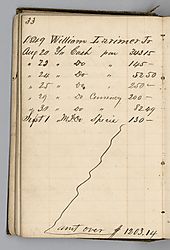 33
1849 William Larimer Jr
Aug 20 To Cash par 343 15
" 23 " Do " 145 -
" 24 " Do " 52 50
" 25 " Do " 250 -
" 29 " Do Currency 200 -
" 30 " Do " 82 49
Sept 1 Do Specie 130 -
amt over $ 1203.14